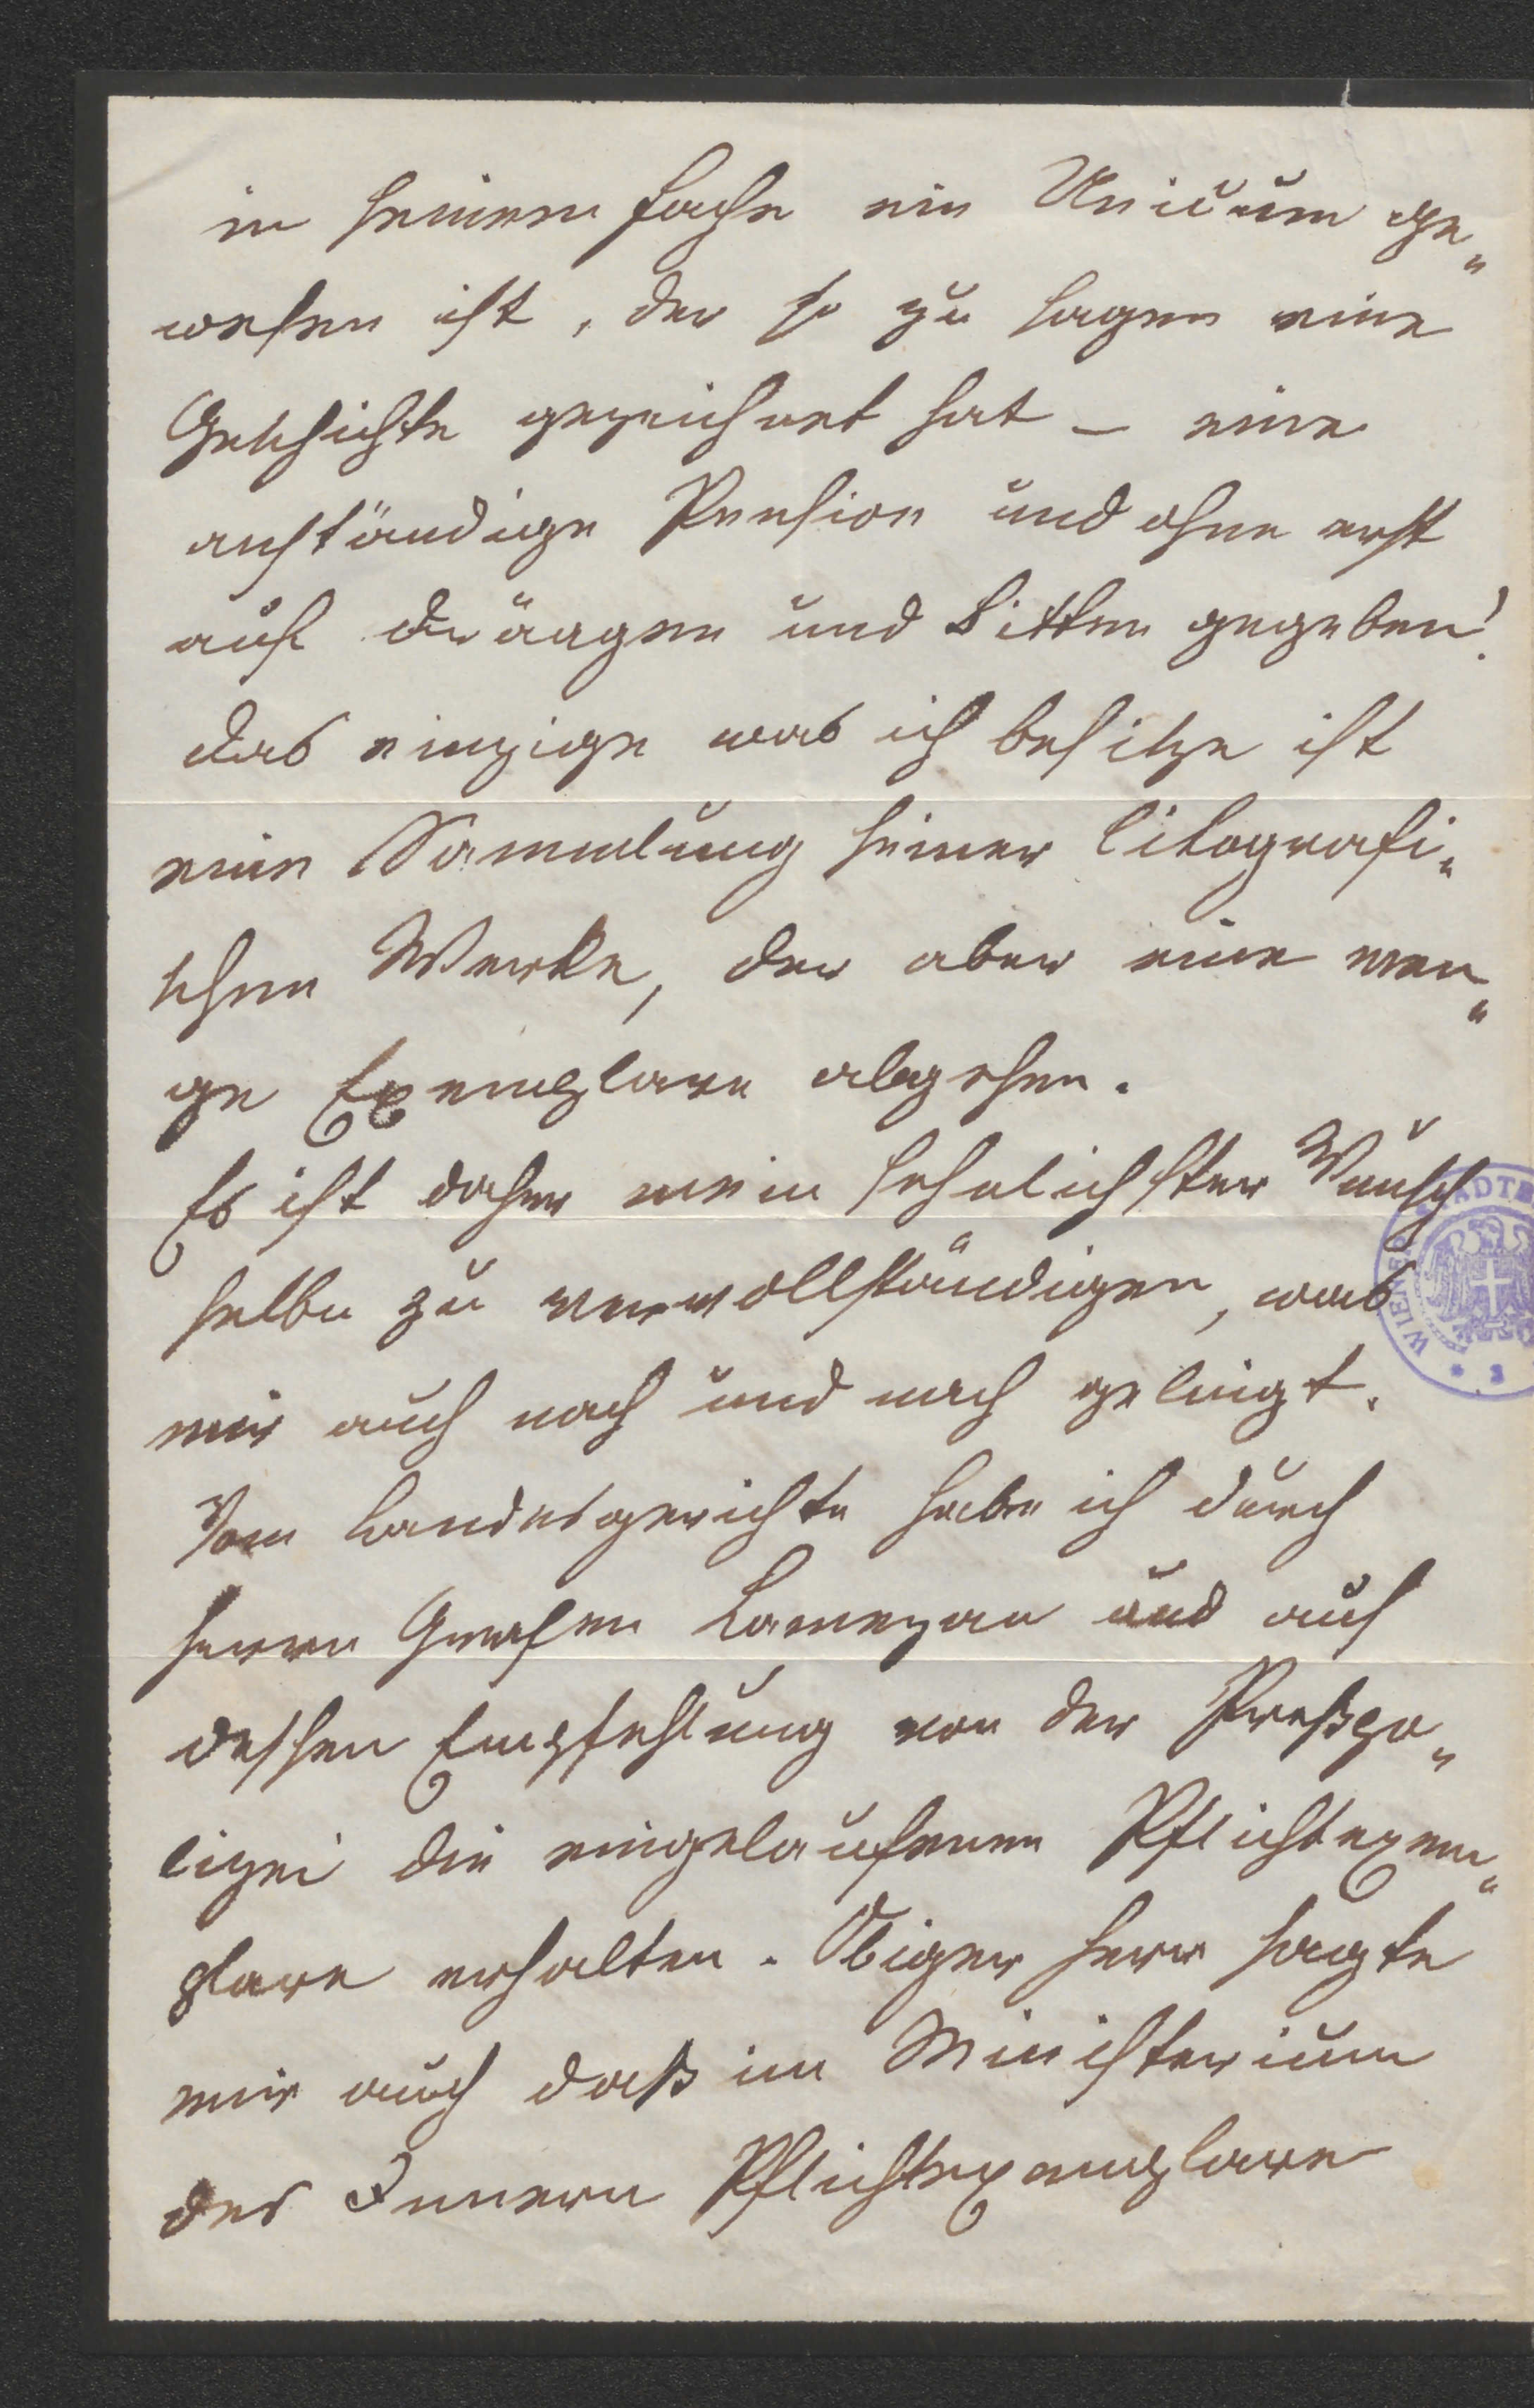 in seinem Fache ein Unicum ge„
wesen ist, der so zu sagen eine
Geschichte gezeichnet hat – eine
anständige Pension und ohne erst
auf drängen und bitten gegeben!
Das einzige was ich besitze ist
eine Sammlung seiner litografi„
schen Werke, der aber eine men„
ge Exemplare abgehen.
Es ist daher mein sehnlichster Wunsch
selbe zu vervollständigen, was
mir auch nach und nach gelingt.
Vom Landesgerichte habe ich durch
Herrn Grafen Lamezan und auf
dessen Empfehlung von der Preßpo„
lizei die eingelaufenen Pflichtexem„
plare erhalten. Obiger Herr sagte
mir auch daß im Ministerium
des Innern Pflichtexemplare
WIENER STADTB